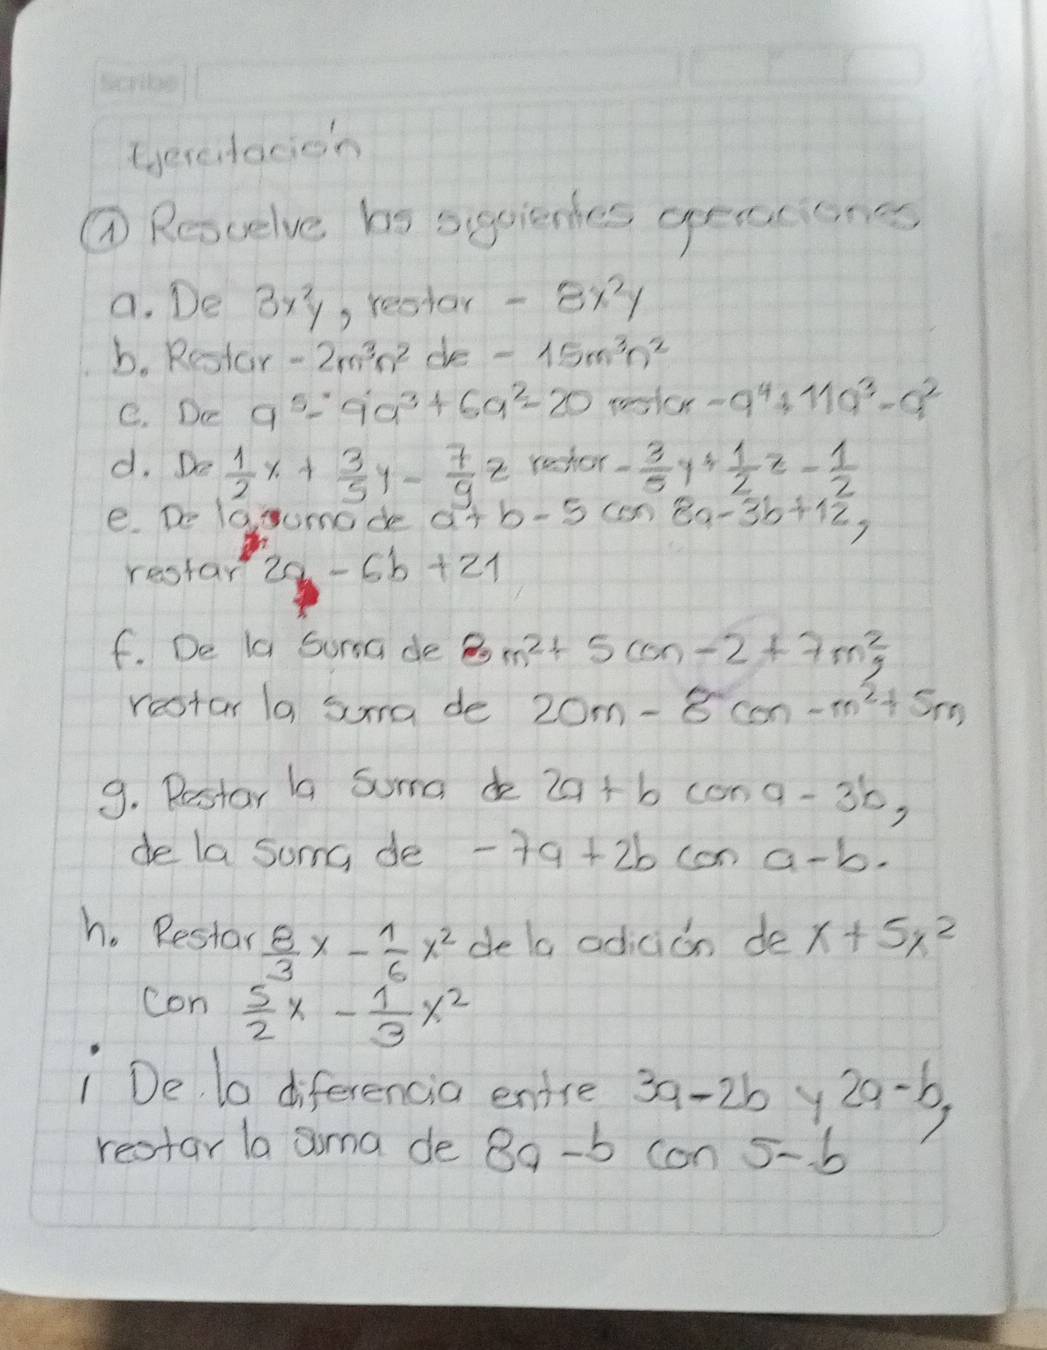 Scribe
Ejercitación
① Resuelve las siguientes operaciones
a. De 3x²y, restar - 8x²y
b. Restar - 2m³n² de - 15m³n²
c. De a⁵ - 9a³ + 6a² - 20 restar - a⁴ + 11a³ - a²
d. De 1/2 x + 3/5 y - 7/9 z restar - 3/5 y + 1/2 z - 1/2
e. De la suma de a + b - 5 con 8a - 3b + 12,
restar 2a - 6b + 21
f. De la suma de 8m² + 5 con - 2 + 7m²,
restar la suma de 20m - 8 con - m² + 5m
g. Restar la suma de 2a + b con a - 3b,
de la suma de - 7a + 2b con a - b.
h. Restar 8/3 x - 1/6 x² de la adición de x + 5x²
con 5/2 x - 1/3 x²
i De la diferencia entre 3a - 2b y 2a - b,
restar la suma de 8a - b con 5 - b